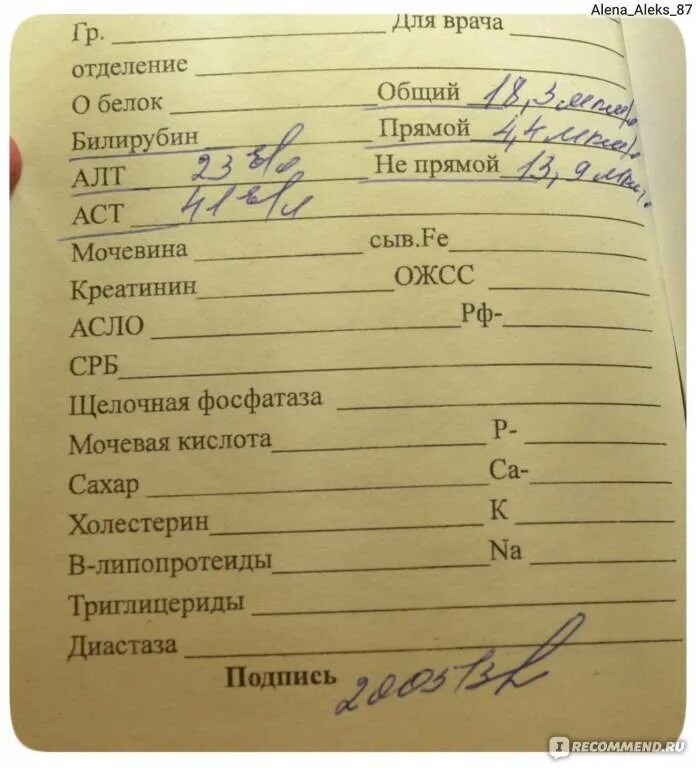 Alena_Aleks_87
Гр. Для врача
отделение
О белок Общий 18,3 мкм/
Билирубин Прямой 4,4 мкм/
АЛТ 23 Не прямой 13,9
АСТ 41
Мочевина сыв.Fe
Креатинин ОЖСС
АСЛО Рф-
СРБ
Щелочная фосфатаза
Мочевая кислота Р-
Сахар Са-
Холестерин К
В-липопротеиды Na
Триглицериды
Диастаза
Подпись
IRECOMMEND.RU